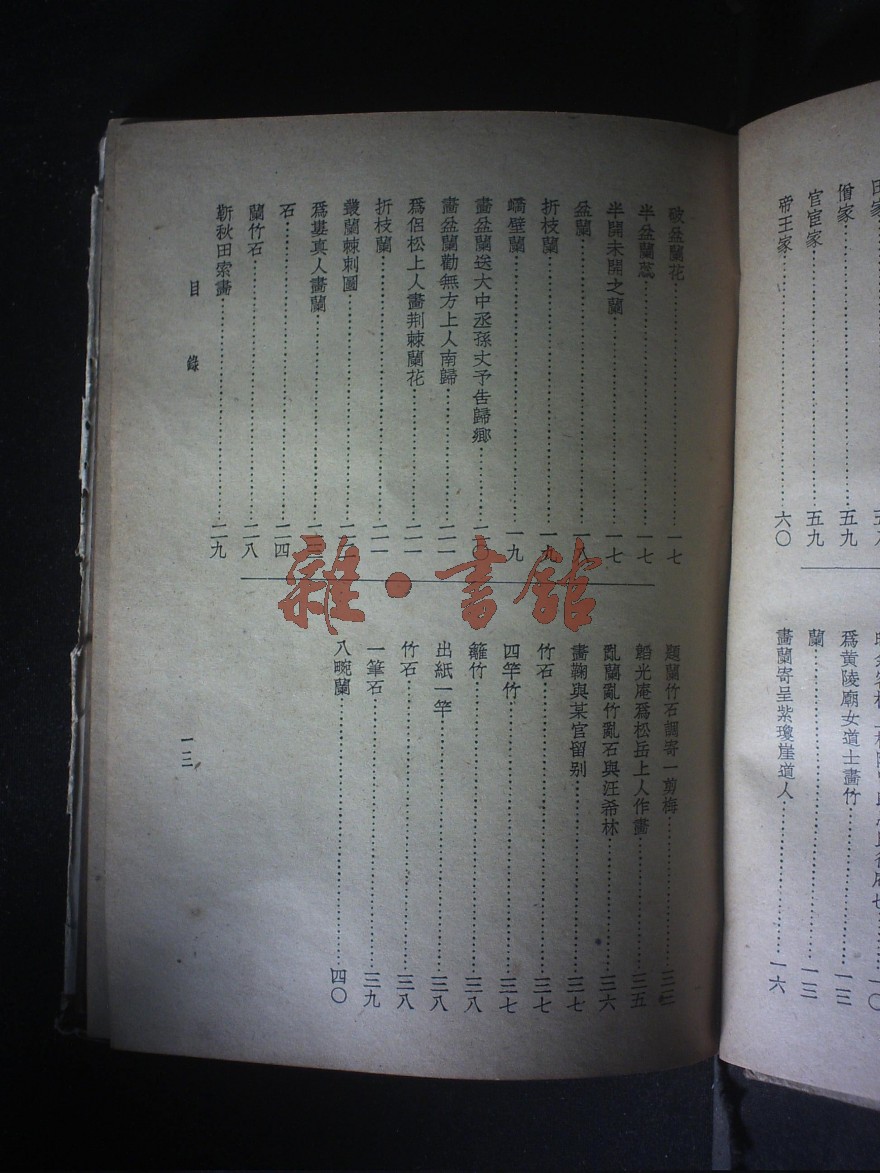 僧家……五九
官宦家……五九
帝王家……六〇
爲黄陵廟女道士畫竹……一三
蘭……一三
畫蘭寄呈紫瓊崖道人……一六
破盆蘭花……一七
半盆蘭蕊……一七
半開未開之蘭……一七
盆蘭……一八
折枝蘭……一九
嶠壁蘭……一九
畫盆蘭送大中丞孫丈予告歸鄉……二〇
畫盆蘭勸無方上人南歸……二一
爲侶松上人畫荆棘蘭花……二一
折枝蘭……二一
叢蘭棘刺圖……二二
爲婁真人畫蘭……二三
石……二四
蘭竹石……二八
靳秋田索畫……二九
題蘭竹石調寄一剪梅……
韜光庵爲松岳上人作畫……三五
亂蘭亂竹亂石與汪希林……三六
畫鞠與某官留别……三七
竹石……三七
四竿竹……三七
籬竹……三八
出紙一竿……三八
竹石……三八
一筆石……三九
八畹蘭……四〇
目錄
一三
雜·書館